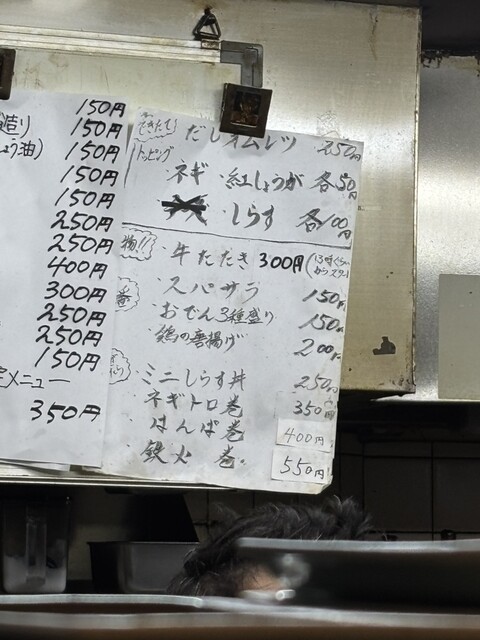 150円
造り 150円
しょう油) 150円
150円
150円
250円
250円
400円
300円
250円
250円
150円
メニュー
350円
できたて!
だしオムレツ 250円
トッピング
・ネギ ・紅しょうが 各50円
・しらす 各100円
物!!
・牛たたき 300円 (13時ぐらいからスタート
・スパサラ 150円
・おでん3種盛り 150円
・鶏の唐揚げ 200円
・ミニしらす丼 250円
・ネギトロ巻 350円
・はんぱ巻 400円
・鉄火巻 550円